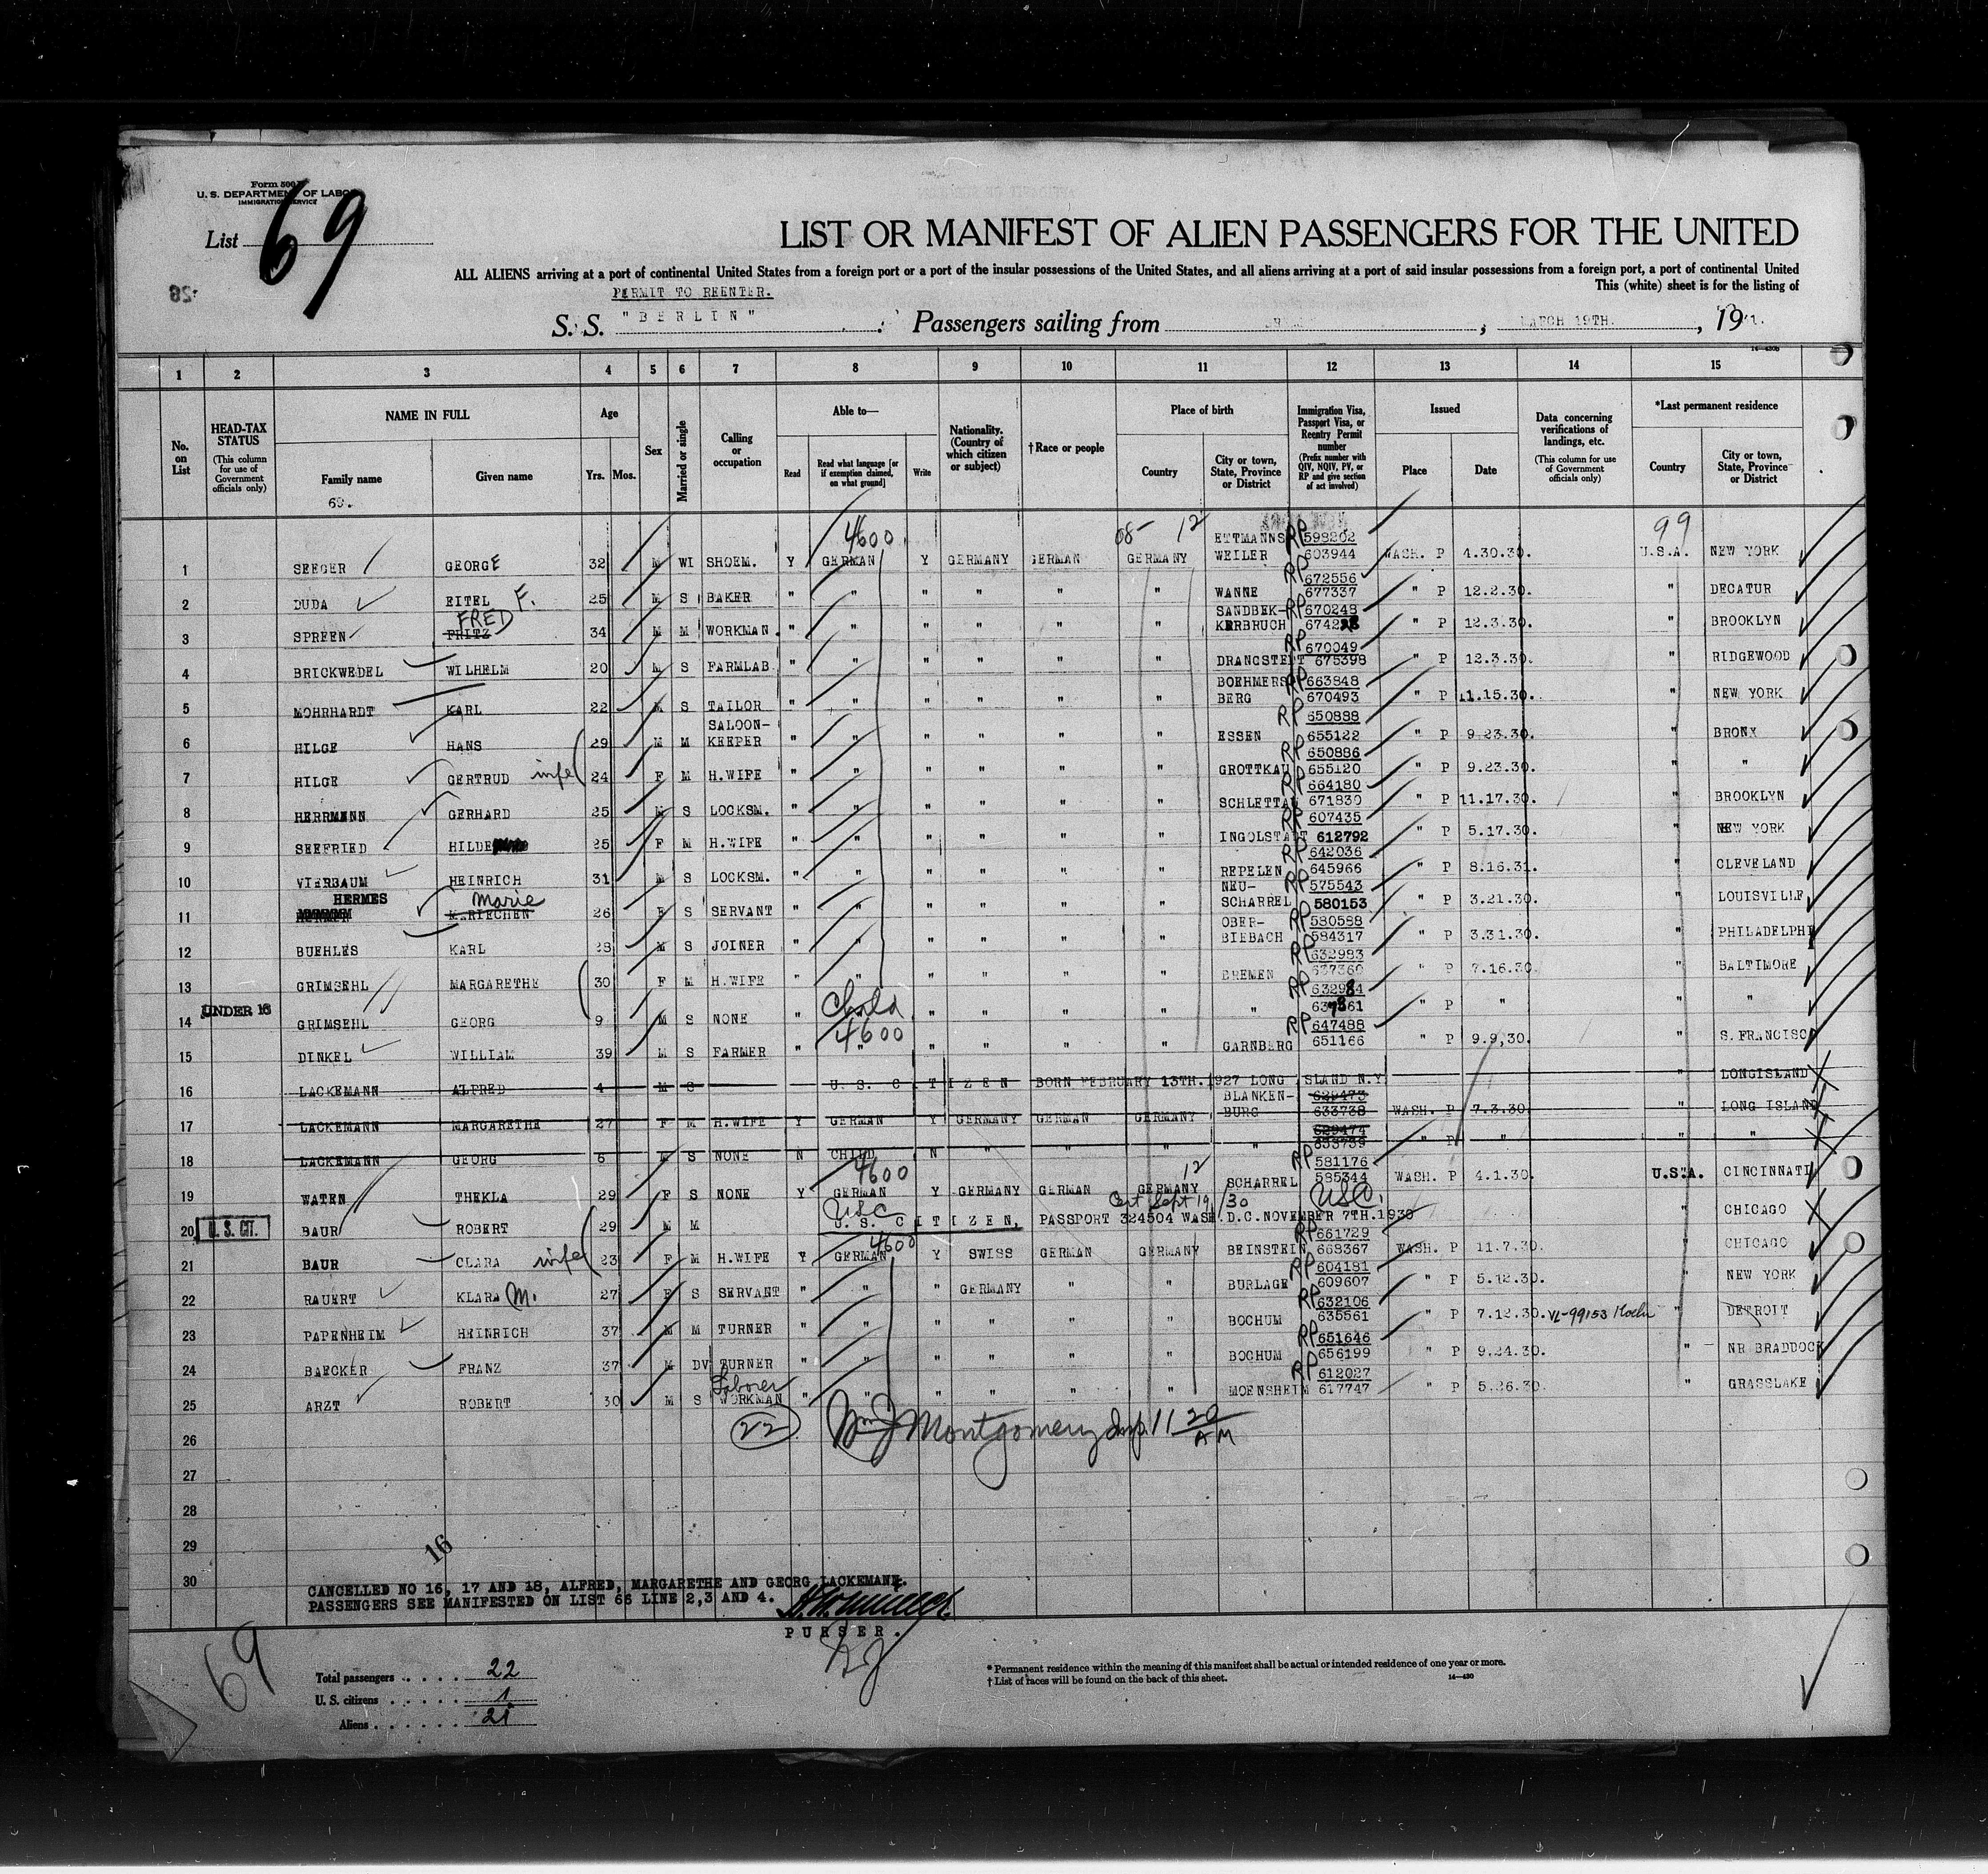 Form 500
U. S. DEPARTMENT OF LABOR
IMMIGRATION SERVICE
List 69
LIST OR MANIFEST OF ALIEN PASSENGERS FOR THE UNITED
ALL ALIENS arriving at a port of continental United States from a foreign port or a port of the insular possessions of the United States, and all aliens arriving at a port of said insular possessions from a foreign port, a port of continental United
This (white) sheet is for the listing of
PERMIT TO REENTER.
S. S. "BERLIN" Passengers sailing from , MARCH 19TH. , 19
1 2 3 4 5 6 7 8 9 10 11 12 13 14 15
No. on List
HEAD-TAX STATUS (This column for use of Government officials only)
NAME IN FULL Family name Given name
Age Yrs. Mos.
Sex
Married or single
Calling or occupation
Able to— Read Read what language [or if exemption claimed, on what ground] Write
Nationality. (Country of which citizen or subject)
† Race or people
Place of birth Country City or town, State, Province or District
Immigration Visa, Passport Visa, or Reentry Permit number (Prefix number with QIV, NQIV, PV, or RP and give section of act involved)
Issued Place Date
Data concerning verifications of landings, etc. (This column for use of Government officials only)
*Last permanent residence Country City or town, State, Province or District
69.
4600 08- 12 99
1 SEEGER GEORGE 32 M WI SHOEM. Y GERMAN Y GERMANY GERMAN GERMANY ETTMANNS WEILER RP 598202 603944 WASH. P 4.30.30. U.S.A. NEW YORK
2 DUDA EITEL F. 25 M S BAKER " " " " " " WANNE RP 672556 677337 " P 12.2.30. " DECATUR
3 SPREEN FRITZ FRED 34 M M WORKMAN " " " " " " SANDBEK- KERBRUCH RP 670248 " P 12.3.30. " BROOKLYN
4 BRICKWEDEL WILHELM 20 M S FARMLAB " " " " " " DRANGSTEDT RP 670049 675398 " P 12.3.30. " RIDGEWOOD
5 MOHRHARDT KARL 22 M S TAILOR " " " " " " BOEHMERS BERG RP 663848 670493 " P 11.15.30. " NEW YORK
6 HILGE HANS 29 M M SALOON- KEEPER " " " " " " ESSEN RP 650888 655122 " P 9.23.30. " BRONX
7 HILGE GERTRUD wife 24 F M H.WIFE " " " " " " GROTTKAU RP 650886 655120 " P 9.23.30. " "
8 HERRMANN GERHARD 25 M S LOCKSM. " " " " " " SCHLETTAU RP 664180 671830 " P 11.17.30. " BROOKLYN
9 SEEFRIED HILDE 25 F M H.WIFE " " " " " " INGOLSTADT RP 607435 612792 " P 5.17.30. " NEW YORK
10 VIERBAUM HEINRICH 31 M S LOCKSM. " " " " " " REPELEN RP 642036 645966 " P 8.16.31. " CLEVELAND
11 HERMES MARIECHEN Marie 26 F S SERVANT " " " " " " NEU- SCHARREL RP 575543 580153 " P 3.21.30. " LOUISVILLE
12 BUEHLES KARL 28 M S JOINER " " " " " " OBER- BIEBACH RP 580588 584317 " P 3.31.30. " PHILADELPHI
13 GRIMSEHL MARGARETHE 30 F M H.WIFE " " " " " " BREMEN RP 632983 637360 " P 7.16.30. " BALTIMORE
14 UNDER 16 GRIMSEHL GEORG 9 M S NONE " Child " " " " " RP 632984 " P " " "
15 DINKEL WILLIAM 39 M S FARMER " 4600 " " " " " GARNBERG RP 647488 651166 " P 9.9,30. " S. FRANCISC
16 LACKEMANN ALFRED 4 M S U. S. CITIZEN BORN FEBRUARY 13TH.1927 LONG ISLAND N.Y. " LONGISLAND
17 LACKEMANN MARGARETHE 27 F M H.WIFE Y GERMAN Y GERMANY GERMAN GERMANY BLANKEN- BURG 629473 633738 WASH. P 7.3.30. " LONG ISLAND
18 LACKEMANN GEORG 6 M S NONE N CHILD N " " " 629474 633739 " P " " "
19 WATEN THEKLA 29 F S NONE Y 4600 GERMAN Y GERMANY GERMAN 12 GERMANY SCHARREL RP 581176 585344 WASH. P 4.1.30. U.S.A. CINCINNATI
20 U. S. CIT. BAUR ROBERT 29 M M USC U. S. CITIZEN, PASSPORT 324504 WASH.D.C.NOVEMBER 7TH.1930 Cert Sept 19/30 USC. " CHICAGO
21 BAUR CLARA wife 23 F M H.WIFE Y 4600 GERMAN Y SWISS GERMAN GERMANY BEINSTEIN RP 661729 668367 WASH. P 11.7.30. " CHICAGO
22 RAUERT KLARA M. 27 F S SERVANT " " " GERMANY " " BURLAGE RP 604181 609607 " P 5.12.30. " NEW YORK
23 PAPENHEIM HEINRICH 37 M M TURNER " " " " " " BOCHUM RP 632106 635561 " P 7.12.30. VL-99153 " DETROIT
24 BAECKER FRANZ 37 M DV TURNER " " " " " " BOCHUM RP 651646 656199 " P 9.24.30. " NR BRADDOCK
25 ARZT ROBERT 30 M S Laborer WORKMAN " " " " " " MOENSHEIM RP 612027 617747 " P 5.26.30. " GRASSLAKE
26 22 Wm J Montgomery Insp. 11 20 AM
27
28
29
30
16
CANCELLED NO 16, 17 AND 18, ALFRED, MARGARETHE AND GEORG LACKEMANN.
PASSENGERS SEE MANIFESTED ON LIST 66 LINE 2,3 AND 4.
PURSER.
69
Total passengers . . . . . 22
U. S. citizens . . . . . . 1
Aliens . . . . . . 21
* Permanent residence within the meaning of this manifest shall be actual or intended residence of one year or more.
† List of races will be found on the back of this sheet.
14—430